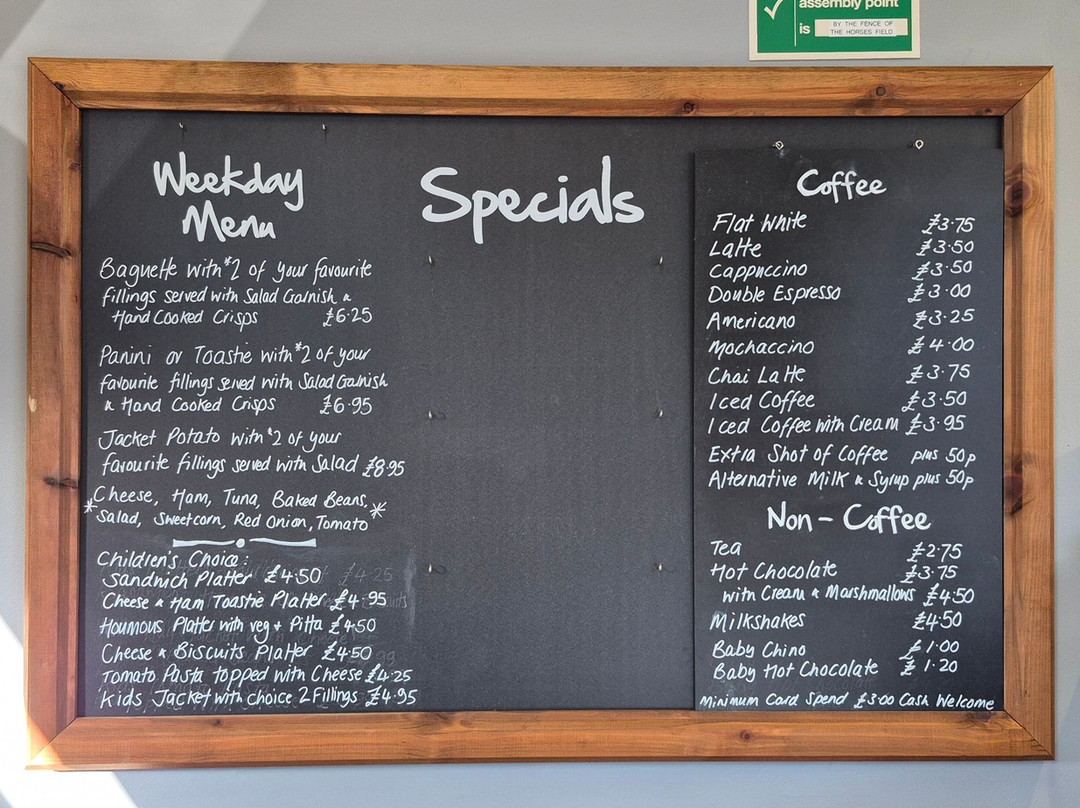 assembly point
is BY THE FENCE OF
THE HORSES FIELD
Weekday
Menu
Baguette with *2 of your favourite
fillings served with Salad Garnish &
Hand Cooked Crisps £6.25
Panini or Toastie with *2 of your
favourite fillings served with Salad Garnish
& Hand Cooked Crisps £6.95
Jacket Potato with *2 of your
favourite fillings served with Salad £8.95
*Cheese, Ham, Tuna, Baked Beans,
Salad, Sweetcorn, Red Onion, Tomato*
Children's Choice:
Sandwich Platter £4.50
Cheese & Ham Toastie Platter £4.95
Houmous Platter with veg + Pitta £4.50
Cheese & Biscuits Platter £4.50
Tomato Pasta topped with Cheese £4.25
Kids Jacket with choice 2 Fillings £4.95
Specials
Coffee
Flat White £3.75
Latte £3.50
Cappuccino £3.50
Double Espresso £3.00
Americano £3.25
Mochaccino £4.00
Chai Latte £3.75
Iced Coffee £3.50
Iced Coffee with Cream £3.95
Extra Shot of Coffee plus 50p
Alternative Milk & Syrup plus 50p
Non-Coffee
Tea £2.75
Hot Chocolate £3.75
with Cream & Marshmallows £4.50
Milkshakes £4.50
Baby Chino £1.00
Baby Hot Chocolate £1.20
Minimum Card Spend £3.00 Cash Welcome